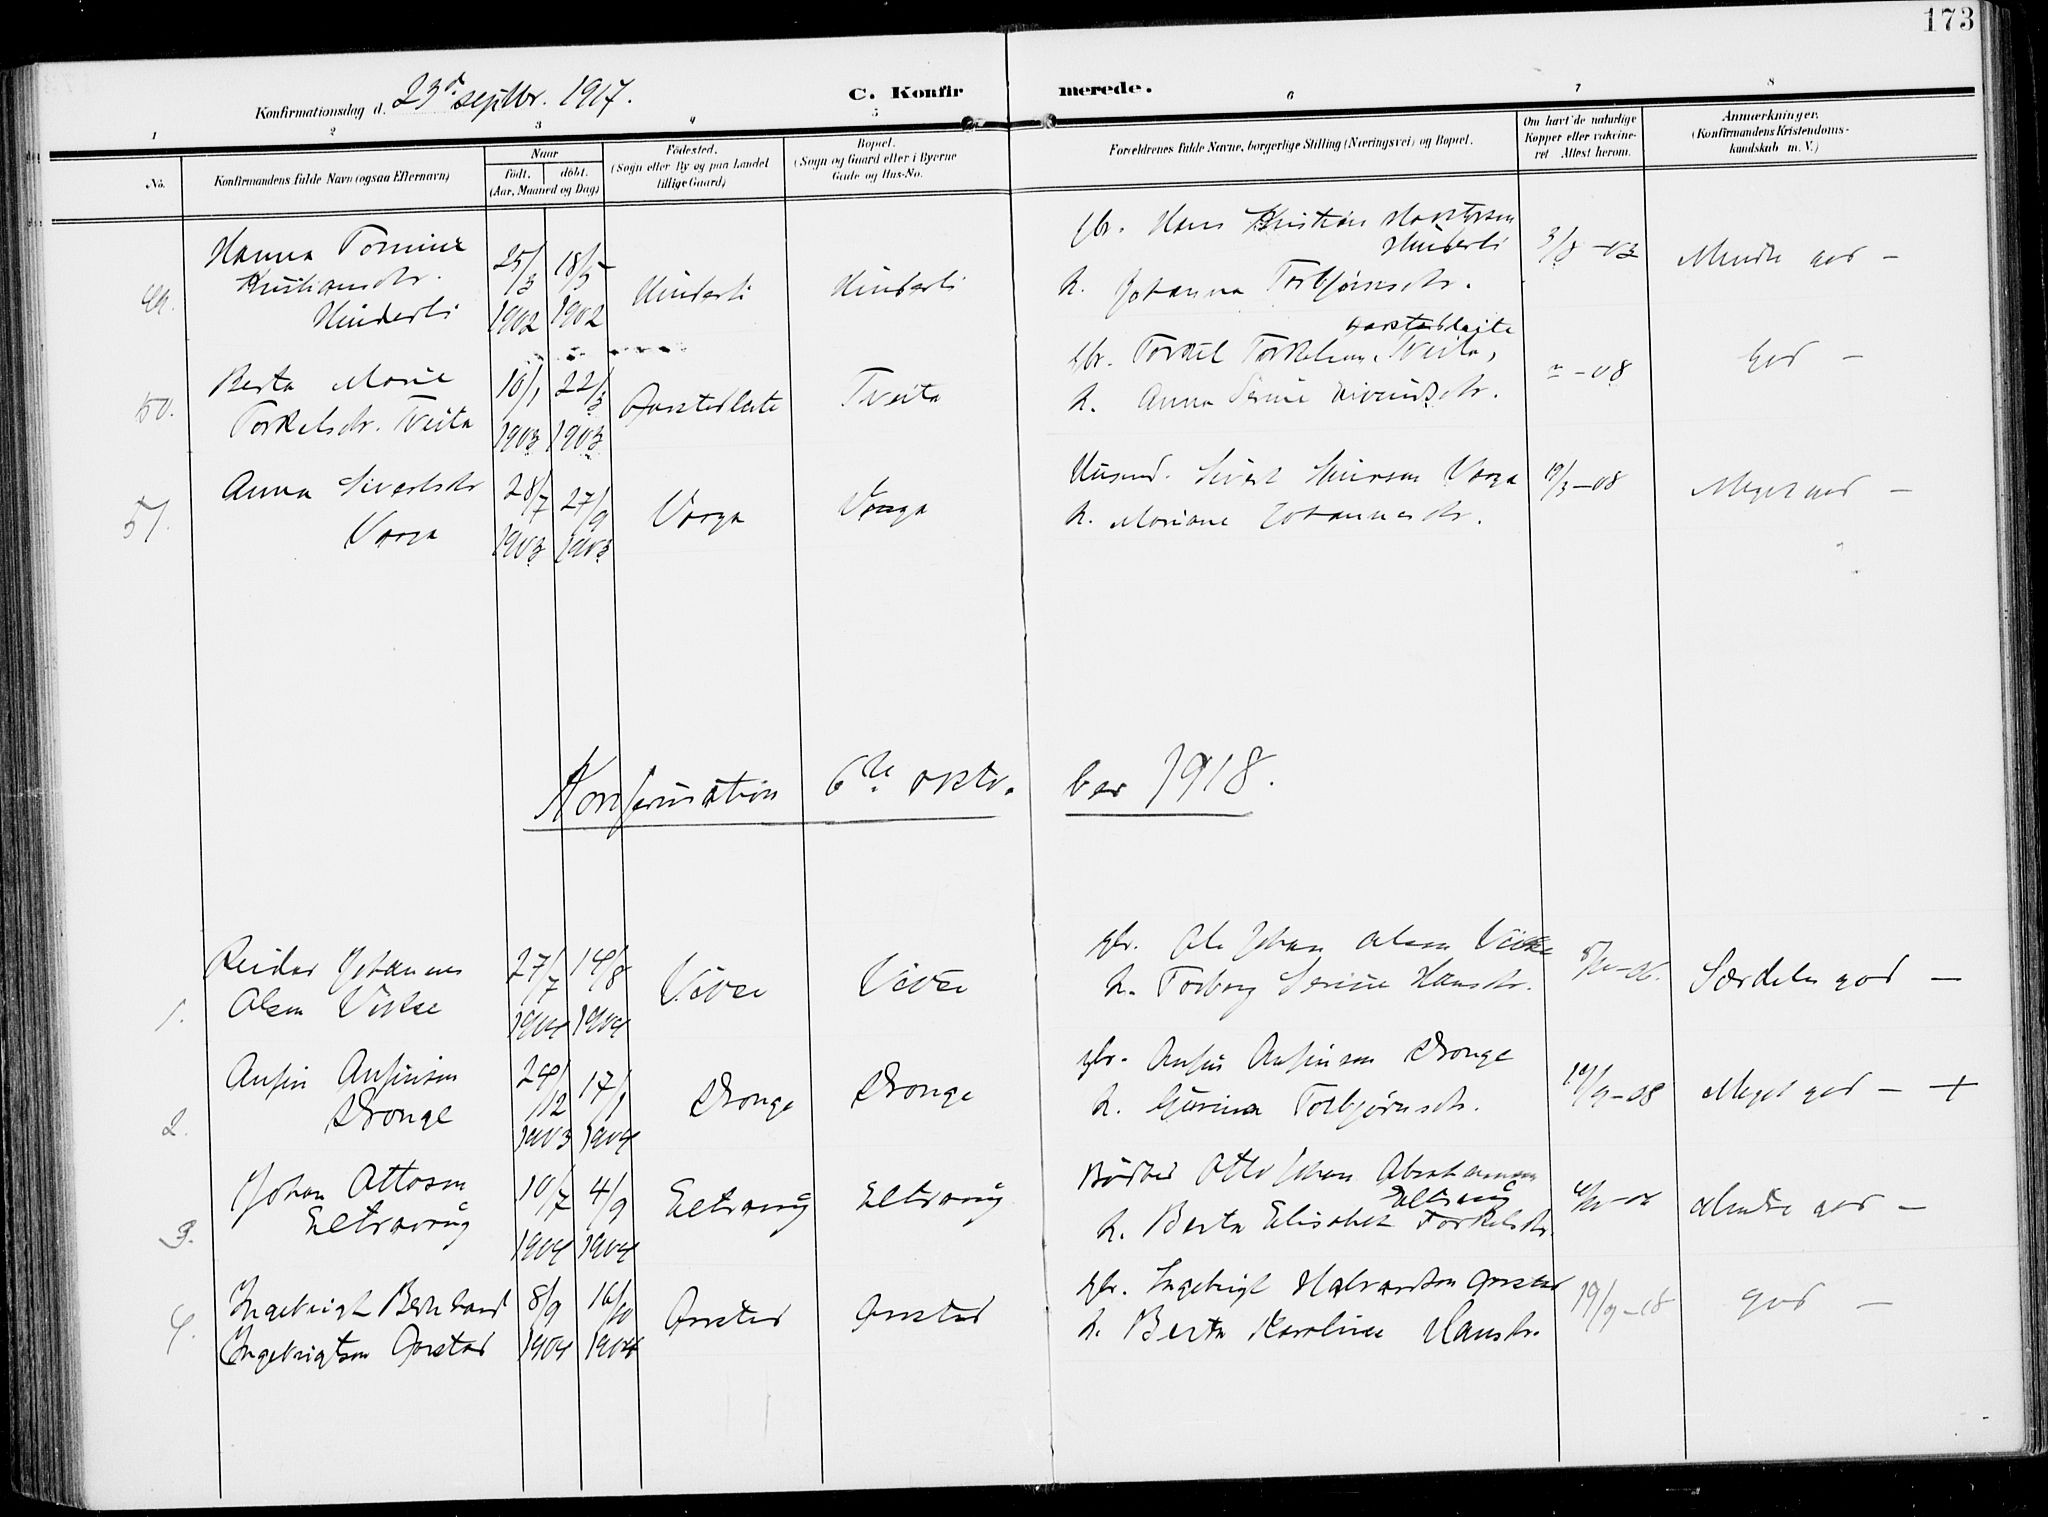 173
Konfirmationsdag d. 23d septbr. 1917.
C. Konfirmerede.
1 2 3 4 5 6 7 8
No.
Konfirmandens fulde Navn (ogsaa Efternavn)
Naar
født. døbt.
(Aar, Maaned og Dag)
Fødested.
(Sogn eller By og paa Landet
tillige Gaard)
Bopæl.
(Sogn og Gaard eller i Byerne
Gade og Hus-No.
Forældrenes fulde Navne, borgerlige Stilling (Næringsvei) og Bopæl.
Om havt de naturlige
Kopper eller vakcine-
ret Attest herom.
Anmærkninger.
(Konfirmandens Kristendoms-
kundskab m. V.)
49.
Hanna Tomine
Kristiansdr.
Hinderli
25/3 1902
18/5 1902
Hinderli
Hinderli
gbr. Hans Kristian
Hinderli
h. Johanna Torbjørnsdr.
3/8 - 03
Mindre god -
50.
Berta Marie
Torkelsdr. Tveita
10/1 1903
22/3 1903
Tveita
gbr. Torkel Tveita,
h. Anna Serine Eivindsdr.
" - 08
God -
51.
Anna Sivertsdr
Vaaga
28/7 1903
27/9 1903
Vaaga
Vaaga
Husmd. Sivert Vaaga
h. Mariane Johannesdr.
Meget god -
Konfirmation 6te oktober 1918.
1.
Reidar Johannes
Olsen Vikse
27/7 1904
14/8 1904
Vikse
Vikse
gbr. Ole Johan Olsen Vikse
h. Torborg Serine Hansdr.
Særdeles god -
2.
Anfin Anfinson
Dronge
24/12 1903
17/1 1904
Dronge
Dronge
gbr. Anfin Anfinson Dronge
h. Gurina Torbjørnsdr.
Meget god - +
3.
Johan Ottoson
Eltravaag
10/7 1904
4/9 1904
Eltravaag
Eltravaag
Otto Johan Abrahamson
Eltravaag
h. Berta Elisabet Torkelsdr.
Mindre god -
4.
Ingebrigt Bernhard
Ingebrigtson Opsted
8/9 1904
16/10 1904
gbr. Ingebrigt Halvardson
h. Berta Karoline Hansdr.
19/9 - 18
god -